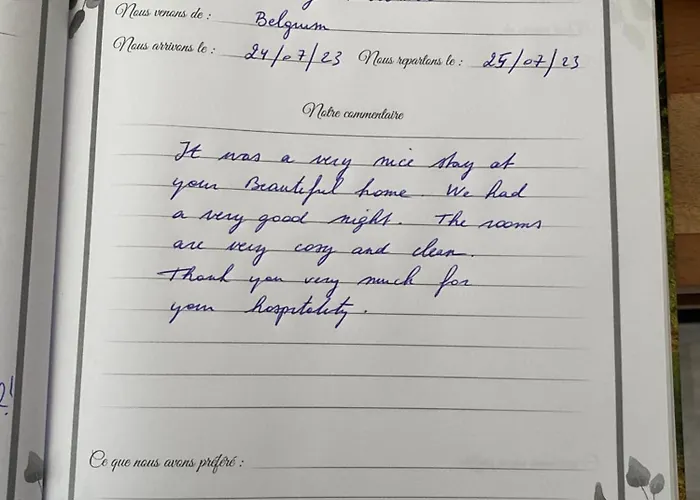 Nous venons de : Belgium
Nous arrivons le : 24/07/23 Nous repartons le : 25/07/23
Notre commentaire
It was a very nice stay at
your Beautiful home. We had
a very good night. The rooms
are very cosy and clean.
Thank you very much for
your hospitality.
Ce que nous avons préféré :